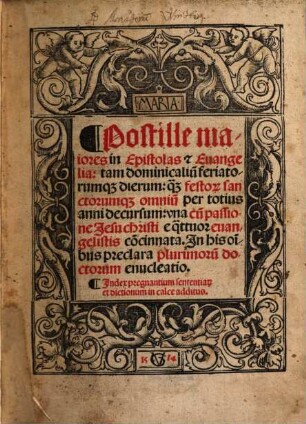 MARIA
¶Postille ma-
iores in Epistolas ⁊ Euange
lia: tam dominicaliū feriato-
rumqꝫ dierum: qꝫ festoꝝ san
ctorumqꝫ omniū per totius
anni decursum: vna cū passio
ne Jesu christi e qͣttuor euan
gelistis cōcinnata. In his oī-
bus preclara plurimorū do-
ctorum enucleatio.
¶Index pregnantium sententiaꝝ
et dictionum in calce additus.
15 14